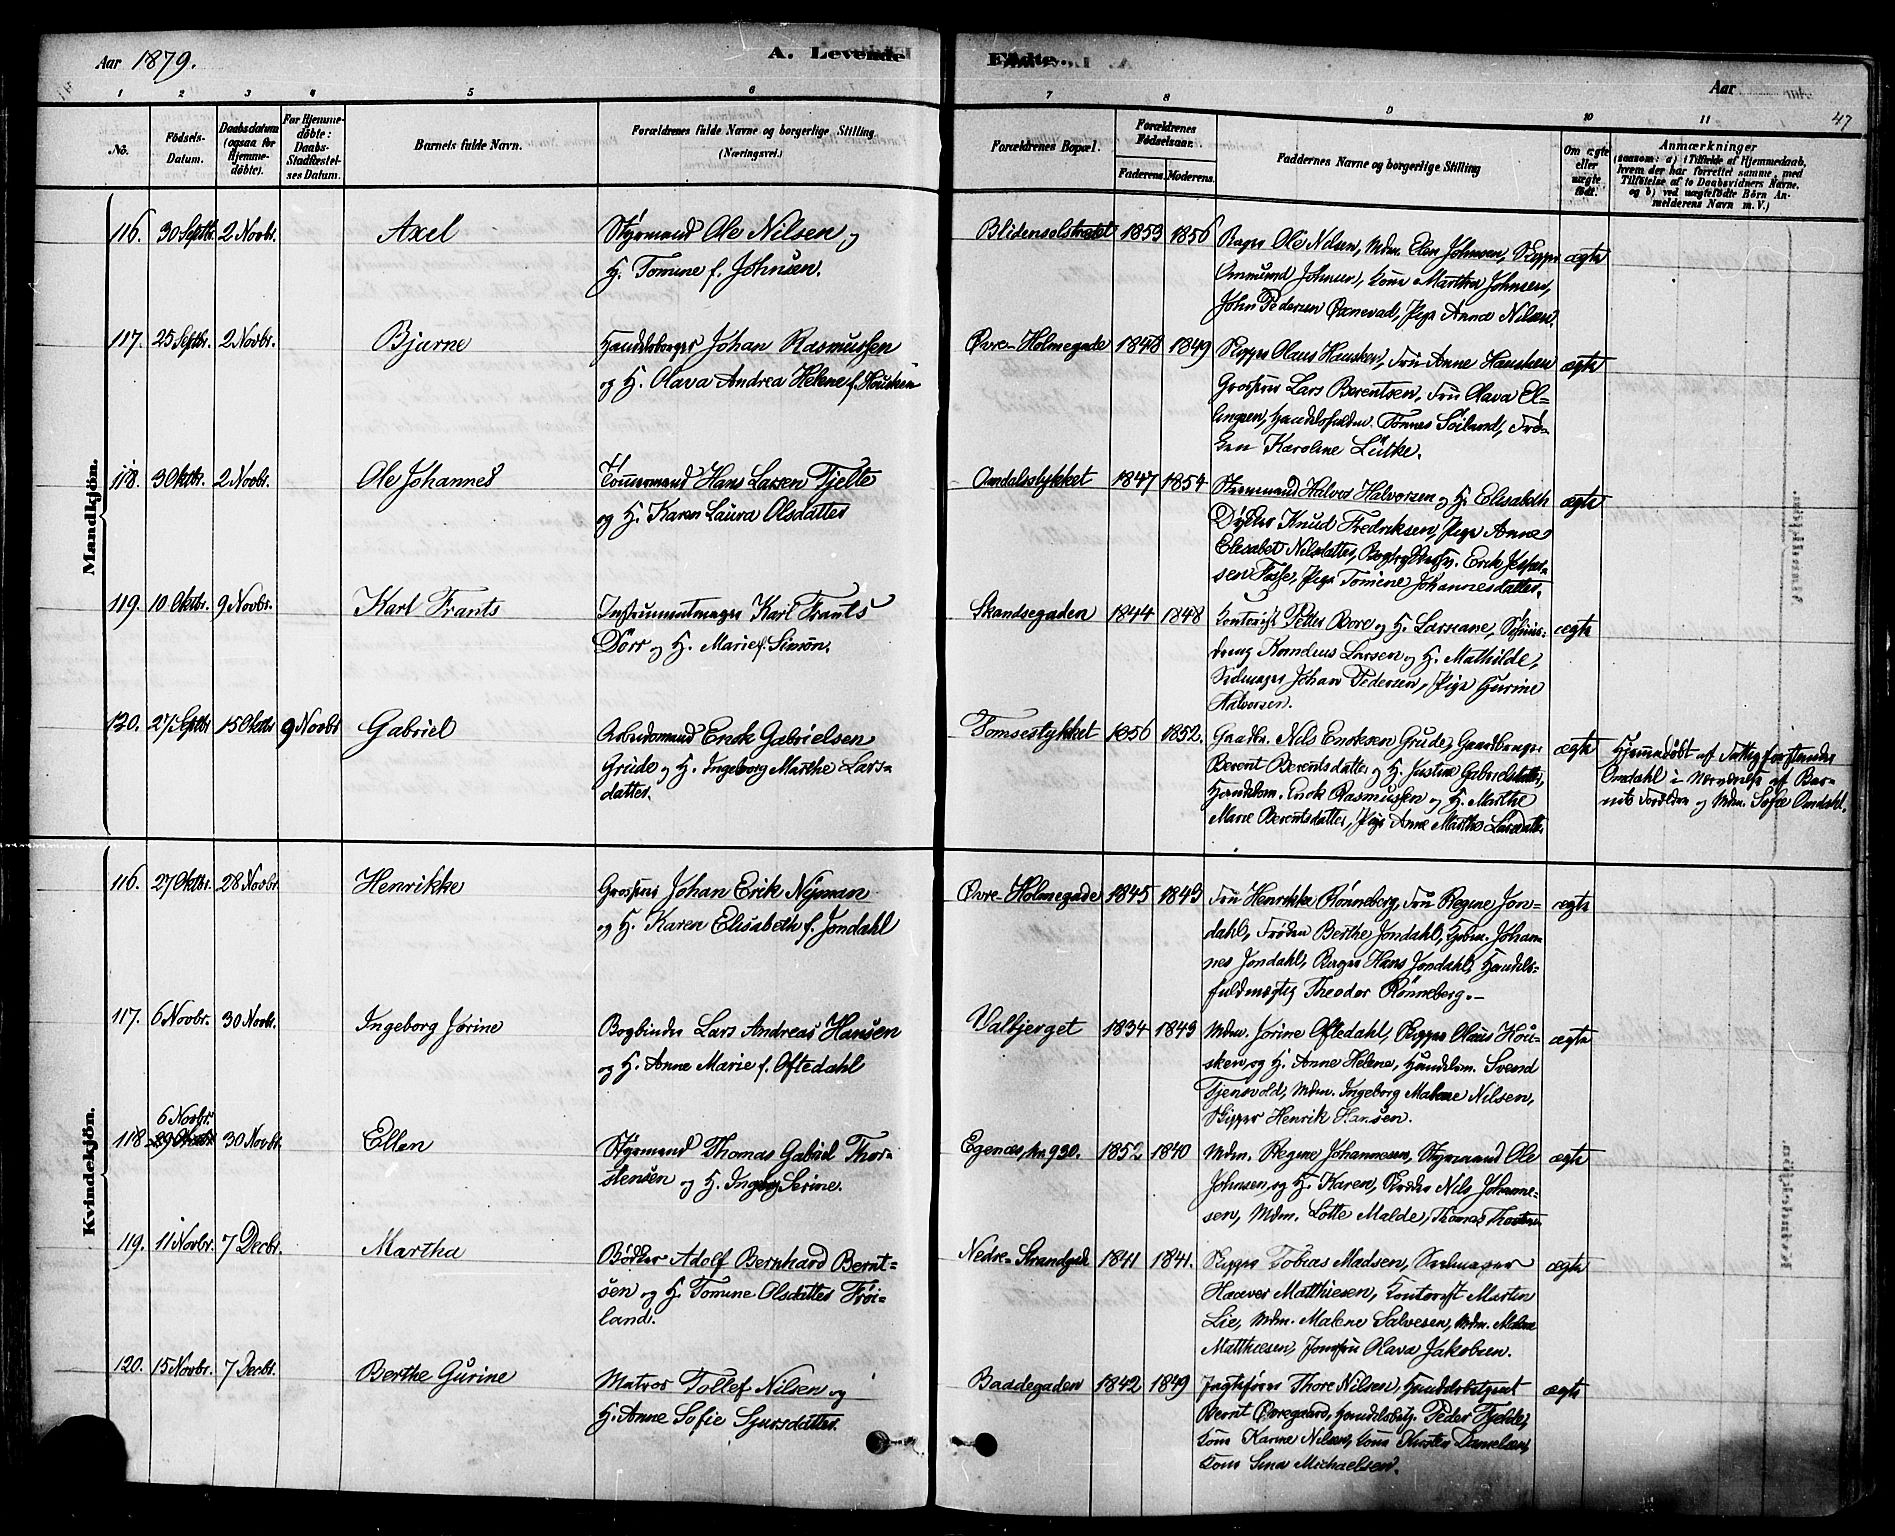 Aar 1879.
A. Levende Fødte.
Aar
47
1 2 3 4 5 6 7 8 9 10 11
No.
Fødsels-Datum.
Daabsdatum (ogsaa for Hjemmedøbte).
For Hjemmedøbte: Daabs-Stadfæstelses Datum.
Barnets fulde Navn.
Forældrenes fulde Navne og borgerlige Stilling. (Næringsvei.)
Forældrenes Bopæl.
Forældrenes Fødselsaar.
Faderens. Moderens.
Faddernes Navne og borgerlige Stilling
Om ægte eller uægte født.
Anmærkninger
(saasom: a) i Tilfælde af Hjemmedaab,
hvem der har forrettet samme, med
Tilføielse af to Daabsvidners Navne,
og b) ved uægtefødte Børn An-
melderens Navn m. V.)
Mandkjön.
116. 30 Septbr. 2 Novbr. Axel
Styrmand Ole Nilsen og
H. Tomine f. Johnsen.
Blidensolstrædet 1853 1856
Bager Ole Nilsen, Mdm. Elen Johnsen, Skipper
Gmmund Johnsen, Kone Martha Johnsen,
John Pedersen Oxnevad, Pige Anna Nilsen.
ægte
117. 25 Septbr. 2 Novbr. Bjarne
Handelsborger Johan Rasmussen
og H. Olava Andrea Helene f. Housken
Øvre-Holmegade 1848 1849
Skipper Olaus Hausken, Fru Anne Hausken
Grosserer Lars Berentsen, Fru Olava El-
lingsen, Handelsfuldm. Tønnes Soiland, Frø-
ken Karoline Lütke.
ægte
118. 3 Oktbr. 2 Novbr. Ole Johannes
Tømmermand Hans Larsen Tjelte
og H. Karen Laura Olsdatter
Omdalsstykket 1847 1854
Styrmand Halvor Halvorsen og H. Elisabeth
Dykker Knud Fredriksen, Pige Anne
Elisabet Nilsdatter, Erik Jesper-
sen Fosse, Pige Tomine Johannesdatter.
ægte
119. 10 Oktbr. 9 Novbr. Karl Frants
Instrumentmager Karl Frants
Dörr og H. Marie f. Simon.
Skandsegaden 1844 1848
Kontorist Petter Bore og H. Larseane,
dreng Kornelius Larsen og H. Mathilde,
Seilmager Johan Pedersen, Pige Gurine
Halvorsen.
ægte
120. 27 Septbr 15 Oktbr 9 Novbr Gabriel
Arbeidsmand Enok Gabrielsen
Grude og H. Ingeborg Marthe Lars-
datter.
Tomsestykket 1856 1852.
Gaardbr. Nils Enoksen Grude, Gaardbruger
Berent Berentsdatter og H. Justine Gabrielsdatter,
Handelsm. Enok Rasmussen og H. Marthe
Marie Berentsdatter, Pige Anne Marthe Larsdatter
ægte
Hjemmedøbt af Fattigforstander
Omdahl i Nærværelse af Bar-
nets Forældre og Mdm. Sofie Omdahl.
Kvindekjön.
116. 27 Oktbr. 28 Novbr. Henrikke
Grosserer Johan Erik Nyman
og H. Karen Elisabeth f. Jondahl
Øvre-Holmegade 1845 1843
Fru Henrikke Rønneberg, Fru Regine Jon-
dahl, Frøken Berthe Jondahl, Kjøbm. Johan-
nes Jondahl, Borger Hans Jondahl, Handels-
fuldmægtig Theodor Rønneberg.-
ægte
117. 6 Novbr. 30 Novbr. Ingeborg Jorine
Bogbinder Lars Andreas Hansen
og H. Anne Marie f. Oftedahl
Valbjerget 1834 1843
Mdm. Jorine Oftedahl, Skipper Olaus Hou-
sken og H. Anne Helene, Handelsm. Svend
Tjensvold, Mdm. Ingeborg Malene Nilsen,
Skipper Henrik Hansen.
ægte
6 Novbr.
118 29 Oktbr. 30 Novbr. Ellen
Styrmand Thomas Gabriel Thor-
stensen og H. Ingeborg Serine.
Egenæs, No. 930. 1852 1840
Mdm. Regine Johannesen, Styrmand Ole
Johnsen og H. Karen, Nils Johanne-
sen, Mdm. Lotte Malde, Thomas Thorsten
ægte
119. 11 Novbr. 7 Decbr. Martha
Bødker Adolf Bernhard Bernt-
sen og H. Tomine Olsdatter Frøi-
land.
Nedre-Strandgad 1841 1841.
Skipper Tobias Madsen, Seilmager
Haaver Matthiesen, Kontorist Martin
Lie, Mdm. Malene Salvesen, Mdm. Malene
Matthiesen, Jomfru Olava Jakobsen.
ægte
120. 15 Novbr. 7 Decbr. Berthe Gurine
Matros Tollef Nilsen og
H. Anne Sofie Sjursdatter.
Baadegaden 1842 1849
Jagtfører Thore Nilsen, Handelsbetjent
Bernt Øvregaard, Handelsbetj. Peder Fjelde,
Kone Karine Nilsen, Kone Kirsten Danielsen,
Kone Sina Michaelsen.
ægte